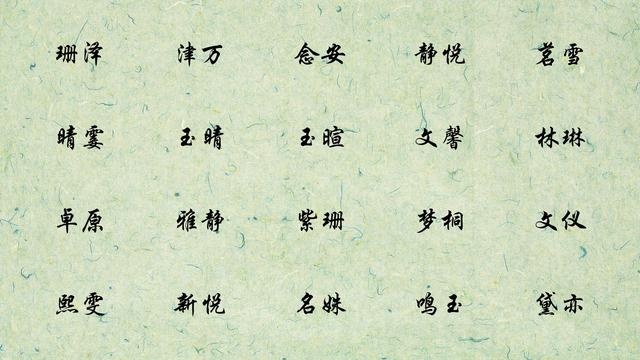 珊泽 津万 念安 静悦 茗雪
晴霎 玉晴 玉暄 文馨 林琳
卓原 雅静 紫珊 梦桐 文仪
熙雯 新悦 名姝 鸣玉 黛亦